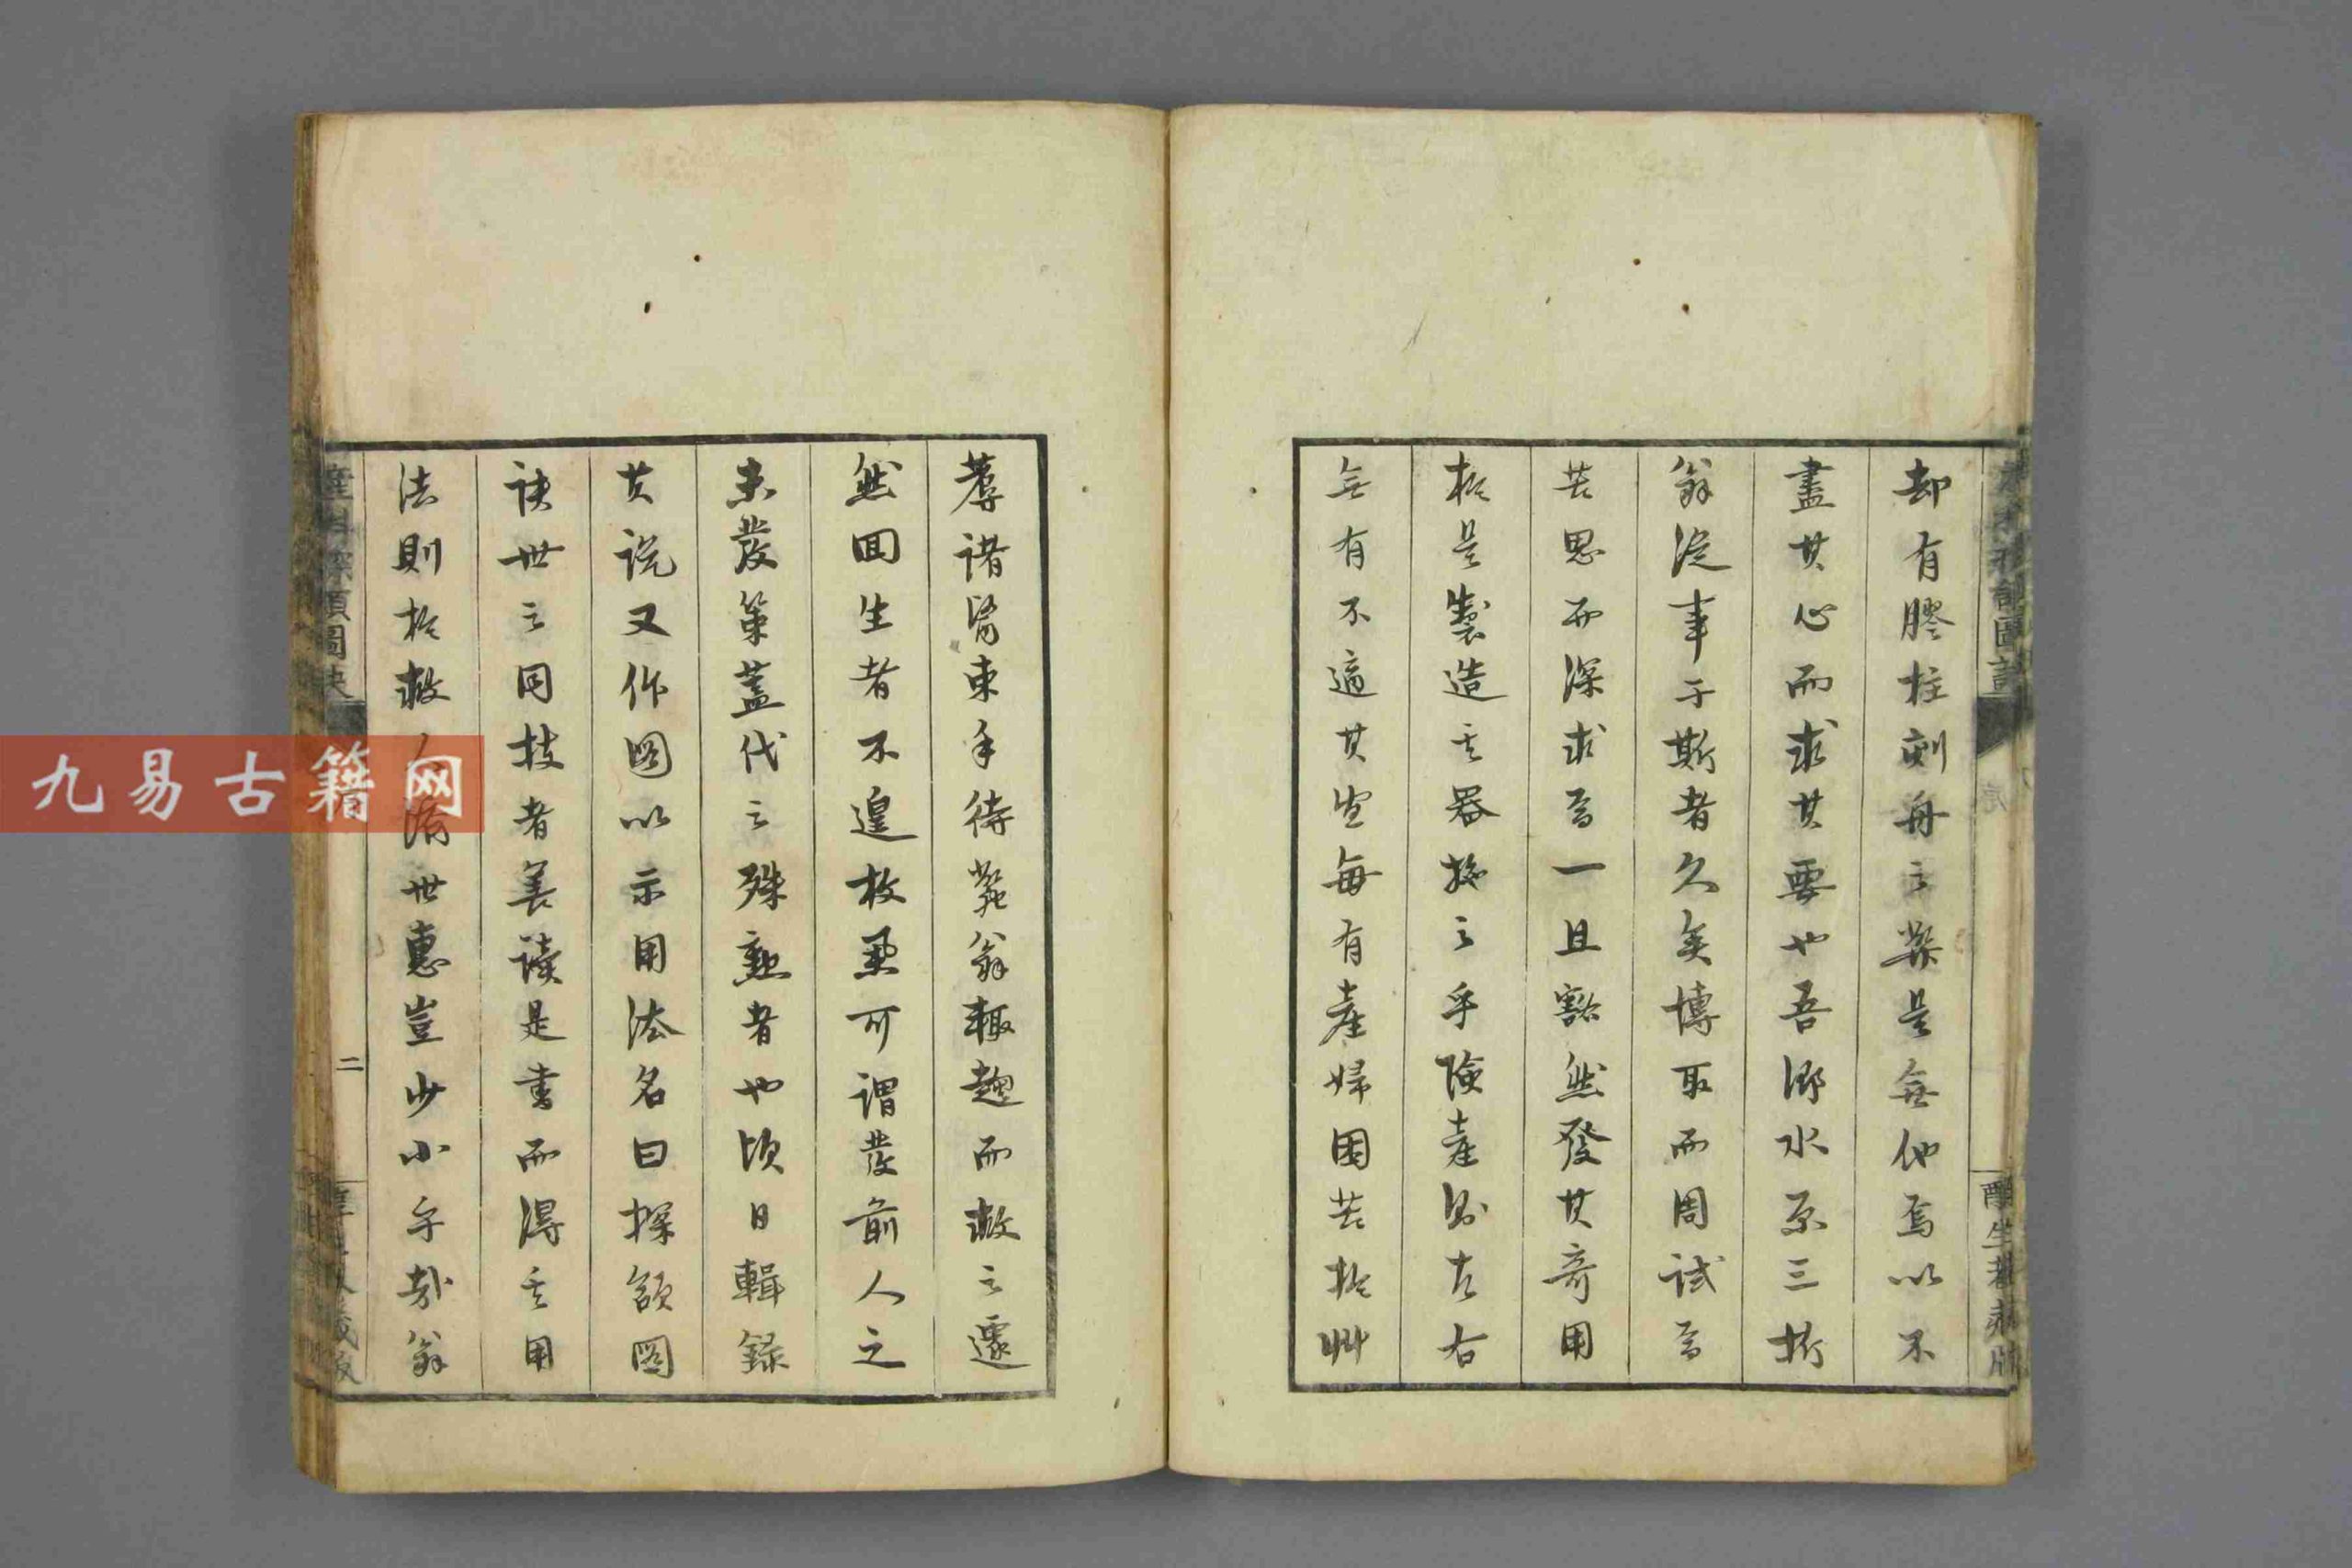 却有膠柱刻舟之弊是無他焉以不
盡其心而求其要也吾鄉水原三折
翁従事于斯者久矣博取而周試焉
苦思而深求焉一旦豁然發其奇用
於是製造之器施之乎險產則左右
無有不適其宜每有產婦困苦於艸
蓐諸醫束手待斃翁輒趣而救之遽
然回生者不遑枚舉可謂發前人之
未發策蓋代之殊勲者也頃日輯録
其説又作圖以示用法名曰探頷圖
訣世之同技者善讀是書而得之用
法則於救人濟世惠豈少小乎哉翁
產科探頷圖訣
二
九易古籍网